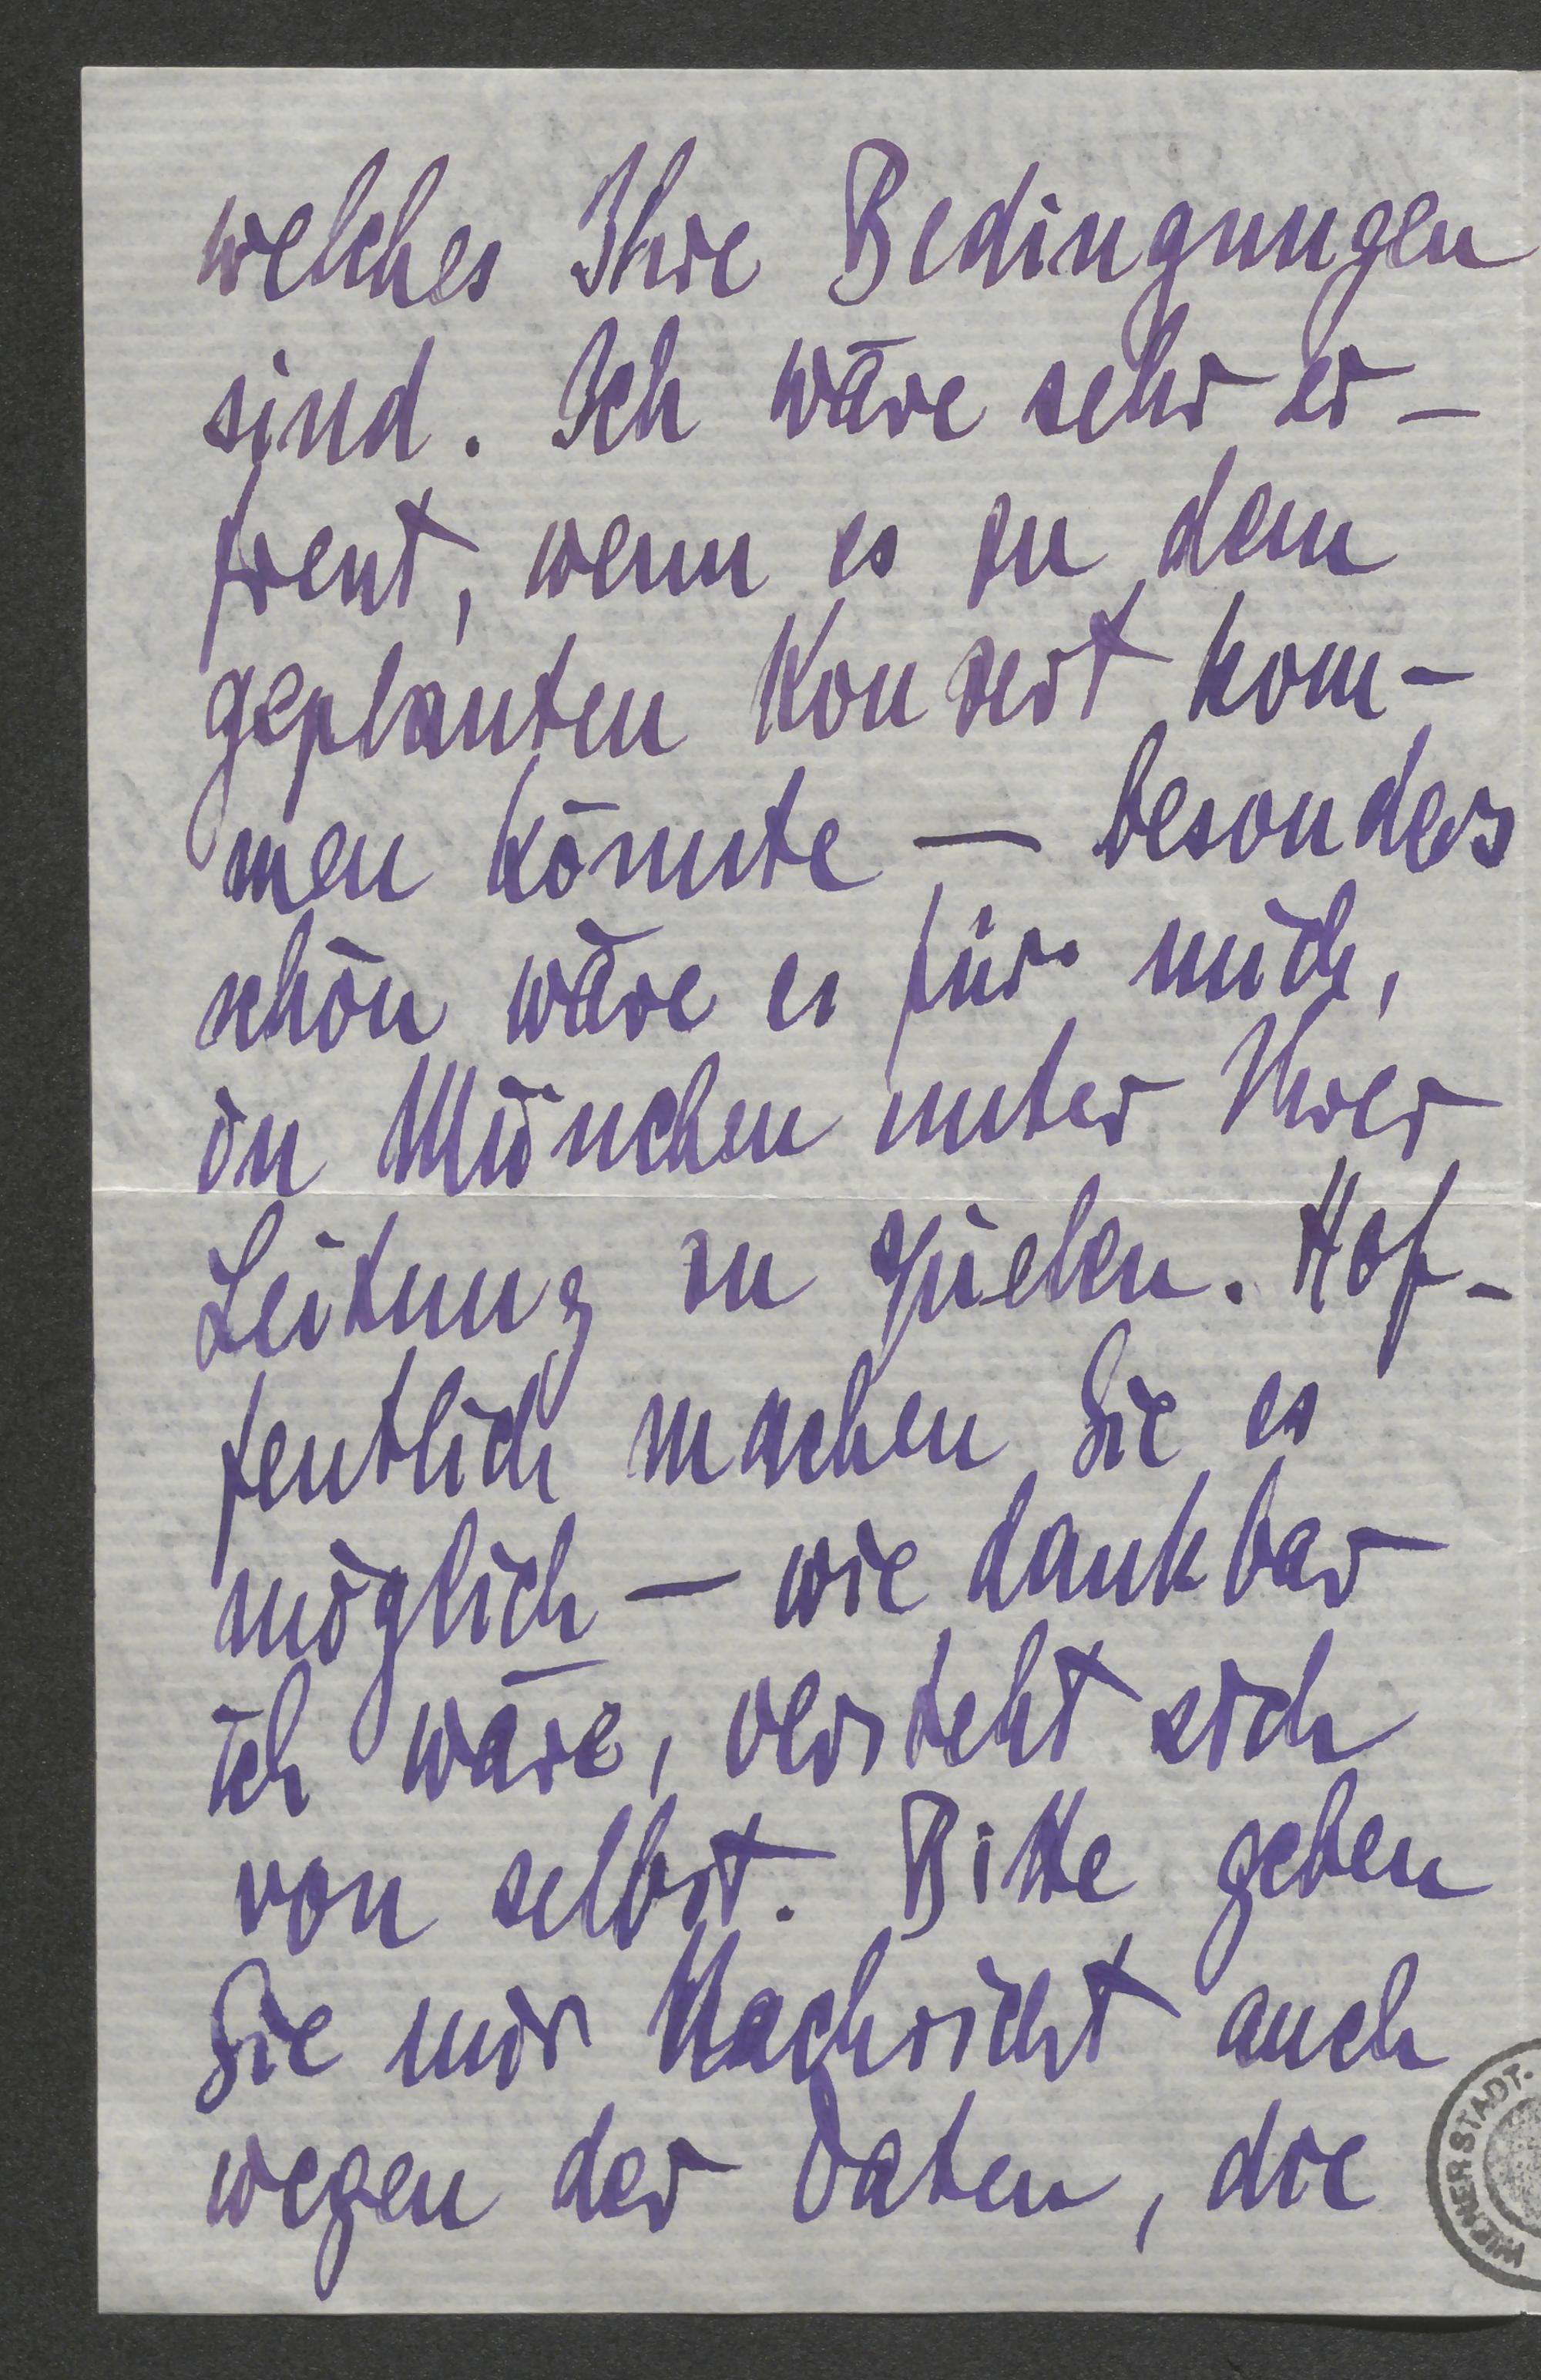 welches Ihre Bedingungen
sind. Ich wäre sehr er-
freut, wenn es zu dem
geplanten Konzert kom-
men könnte — besonders
schön wäre es für mich,
in München unter Ihrer
Leitung zu spielen. Hof-
fentlich machen Sie es
möglich — wie dankbar
ich wäre, versteht sich
von selbst. Bitte geben
Sie mir Nachricht auch
wegen der Daten, die
WIENER STADT-